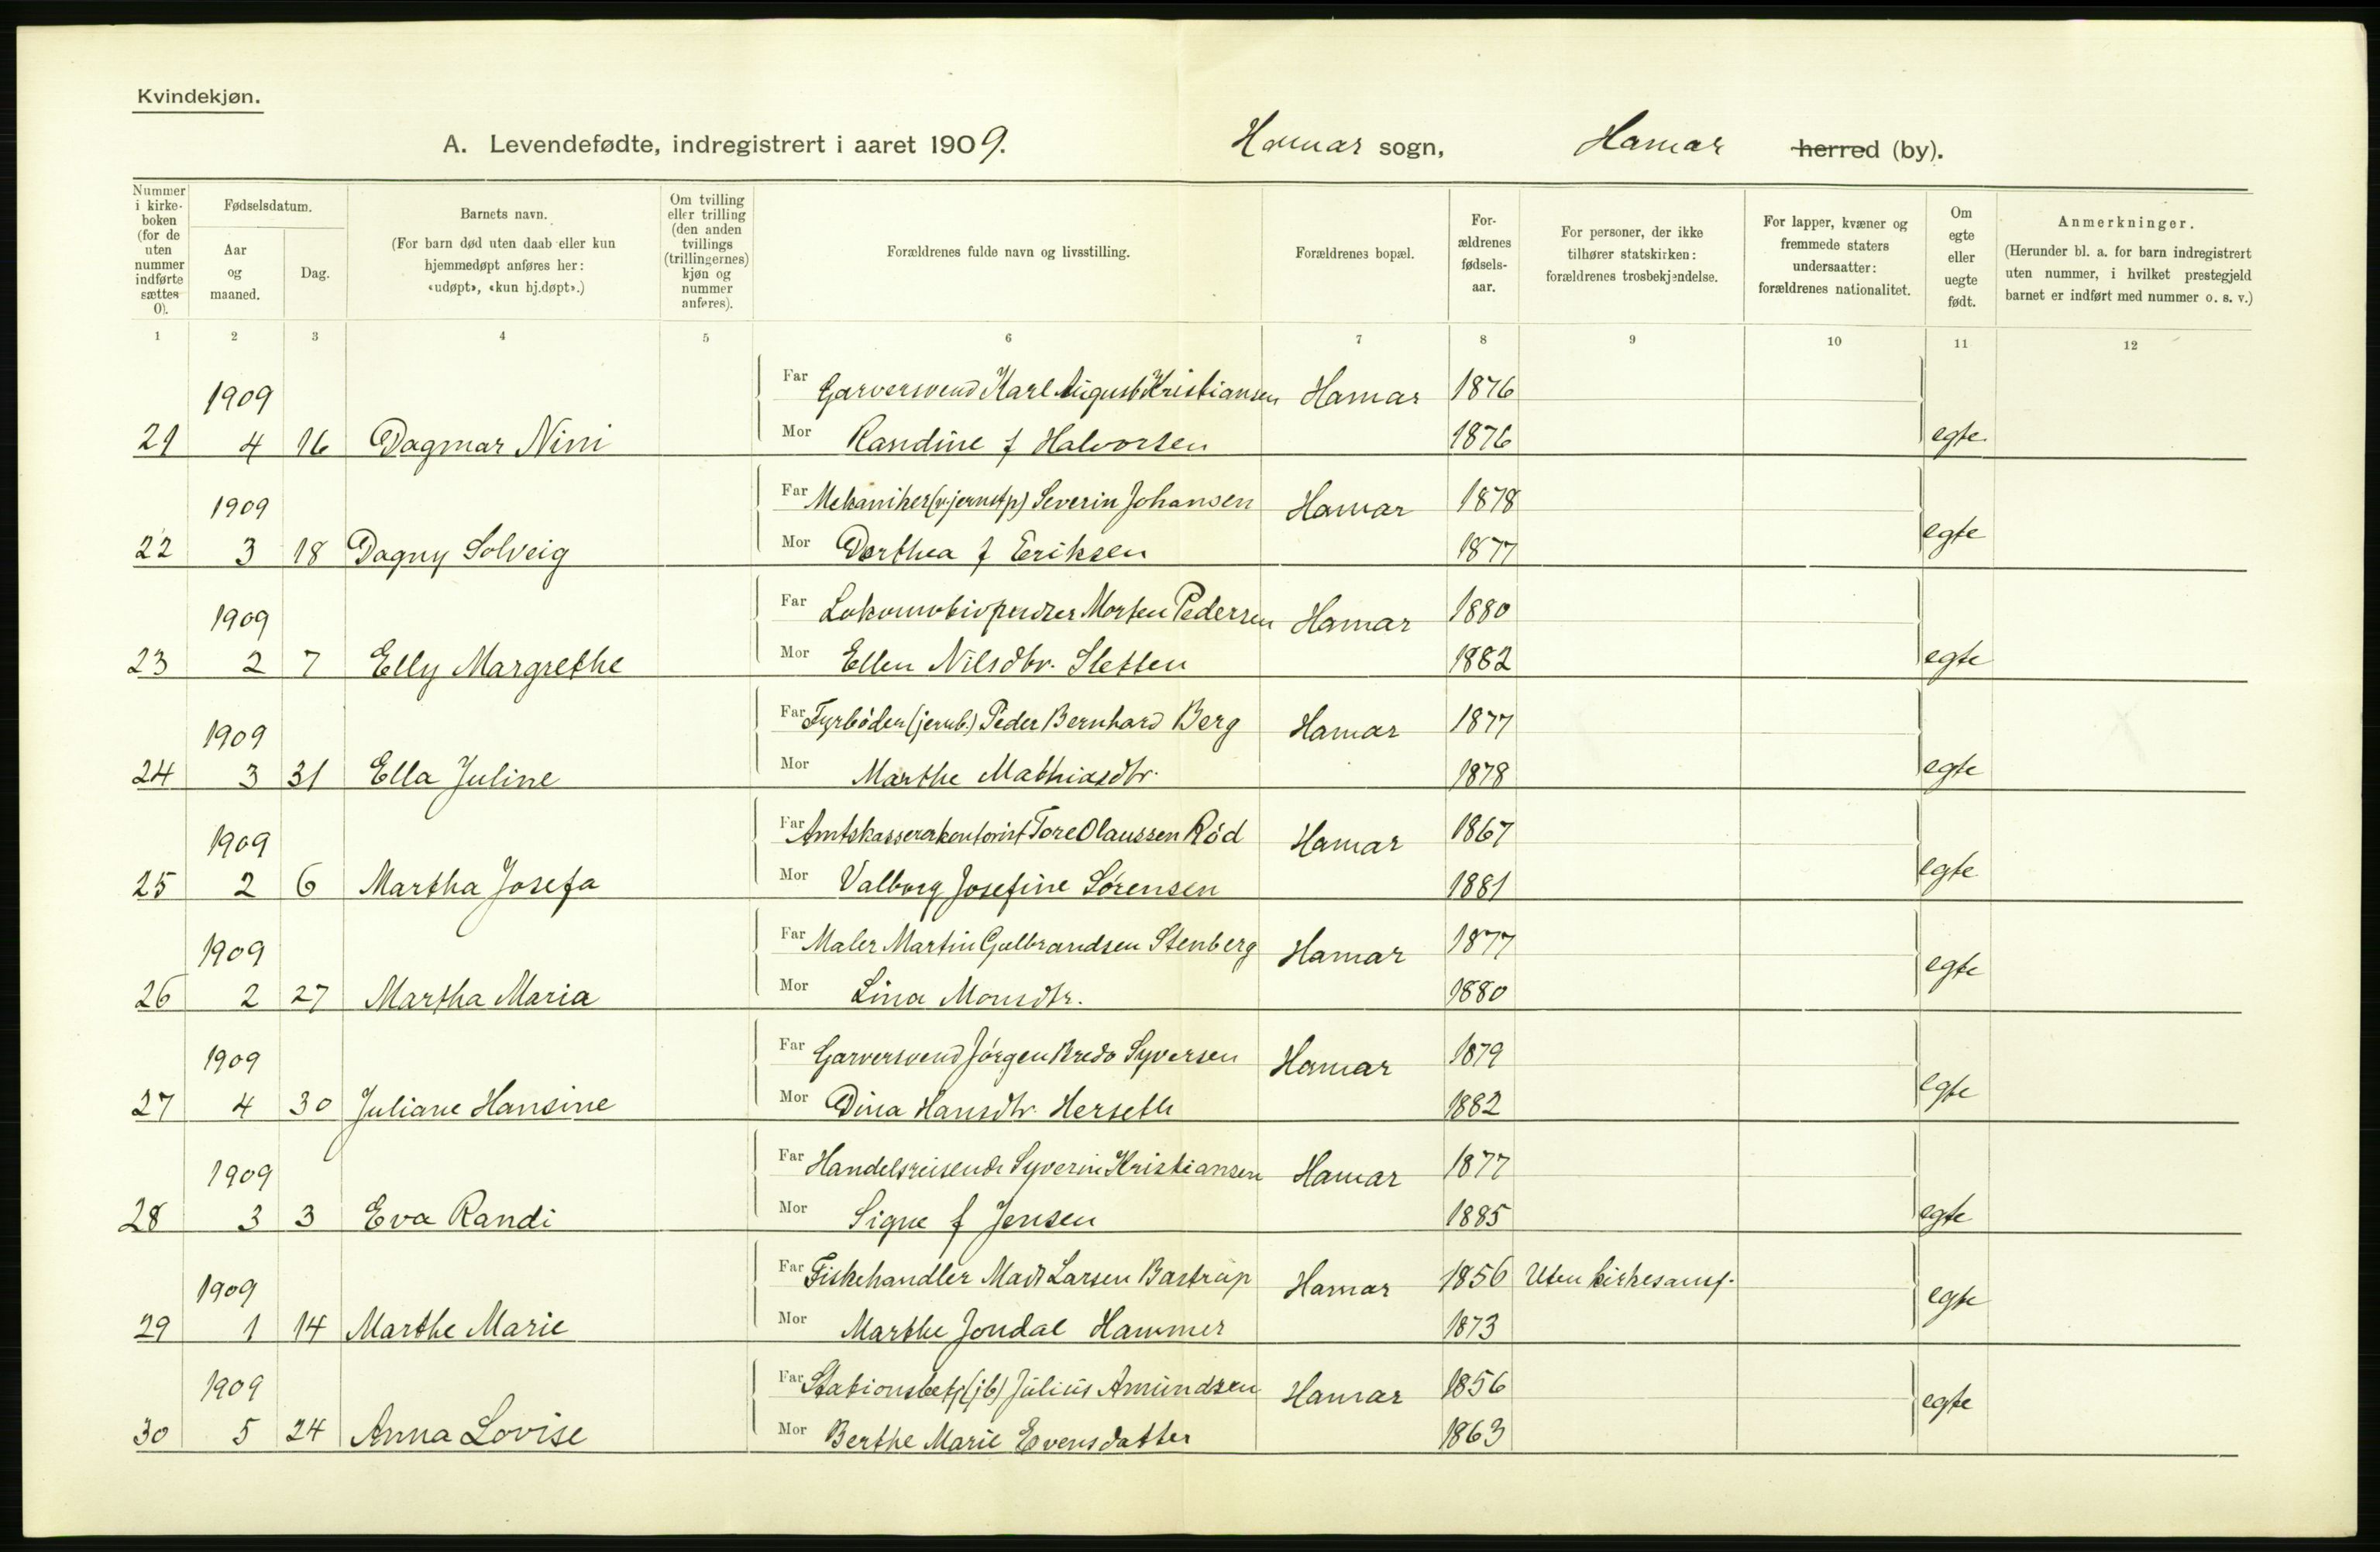 Kvindekjøn.
A. Levendefødte, indregistrert i aaret 1909. Hamar sogn, Hamar herred (by).
Nummer i kirkeboken (for de uten nummer indførte sættes 0).
Fødselsdatum.
Aar og maaned.
Dag.
Barnets navn.
(For barn død uten daab eller kun hjemmedøpt anføres her: «udøpt», «kun hj.døpt».)
Om tvilling eller trilling (den anden tvillings (trillingernes) kjøn og nummer anføres).
Forældrenes fulde navn og livsstilling.
Forældrenes bopæl.
Forældrenes fødselsaar.
For personer, der ikke tilhører statskirken: forældrenes trosbekjendelse.
For lapper, kvæner og fremmede staters undersaatter: forældrenes nationalitet.
Om egte eller uegte født.
Anmerkninger.
(Herunder bl. a. for barn indregistrert uten nummer, i hvilket prestegjeld barnet er indført med nummer o. s. v.)
1 2 3 4 5 6 7 8 9 10 11 12
1909 Far Garversvend Karl August Kristiansen Hamar 1876
21 4 16 Dagmar Nini Mor Randine f Halvorsen 1876 egte
1909 Far Mekaniker (v. jernstp) Severin Johansen Hamar 1878
22 3 18 Dagny Solveig Mor Dorthea f Eriksen 1877 egte
1909 Far Lokomotivpudser Morten Pedersen Hamar 1880
23 2 7 Elly Margrethe Mor Ellen Nilsdtr. Sletten 1882 egte
1909 Far Fyrbøder (jernb.) Peder Bernhard Berg Hamar 1877
24 3 31 Ella Juline Mor Marthe Mathiasdtr. 1878 egte
1909 Far Amtskassererkontorist Tore Olaussen Rød Hamar 1867
25 2 6 Martha Josefa Mor Valborg Josefine Sørensen 1881 egte
1909 Far Maler Martin Gulbrandsen Stenberg Hamar 1877
26 2 27 Martha Maria Mor Lina Monsdtr. 1880 egte
1909 Far Garversvend Jørgen Bredo Syversen Hamar 1879
27 4 30 Juliane Hansine Mor Dina Hansdtr. Herseth 1882 egte
1909 Far Handelsreisende Syverin Kristiansen Hamar 1877
28 3 3 Eva Randi Mor Signe f Jensen 1885 egte
1909 Far Fiskehandler Mads Larsen Bastrup Hamar 1856 Uten kirkesamf.
29 1 14 Marthe Marie Mor Marthe Jondal Hammer 1873 egte
1909 Far Stationsbetj (jb) Julius Amundsen Hamar 1856
30 5 24 Anna Lovise Mor Berthe Marie Evensdatter 1863 egte